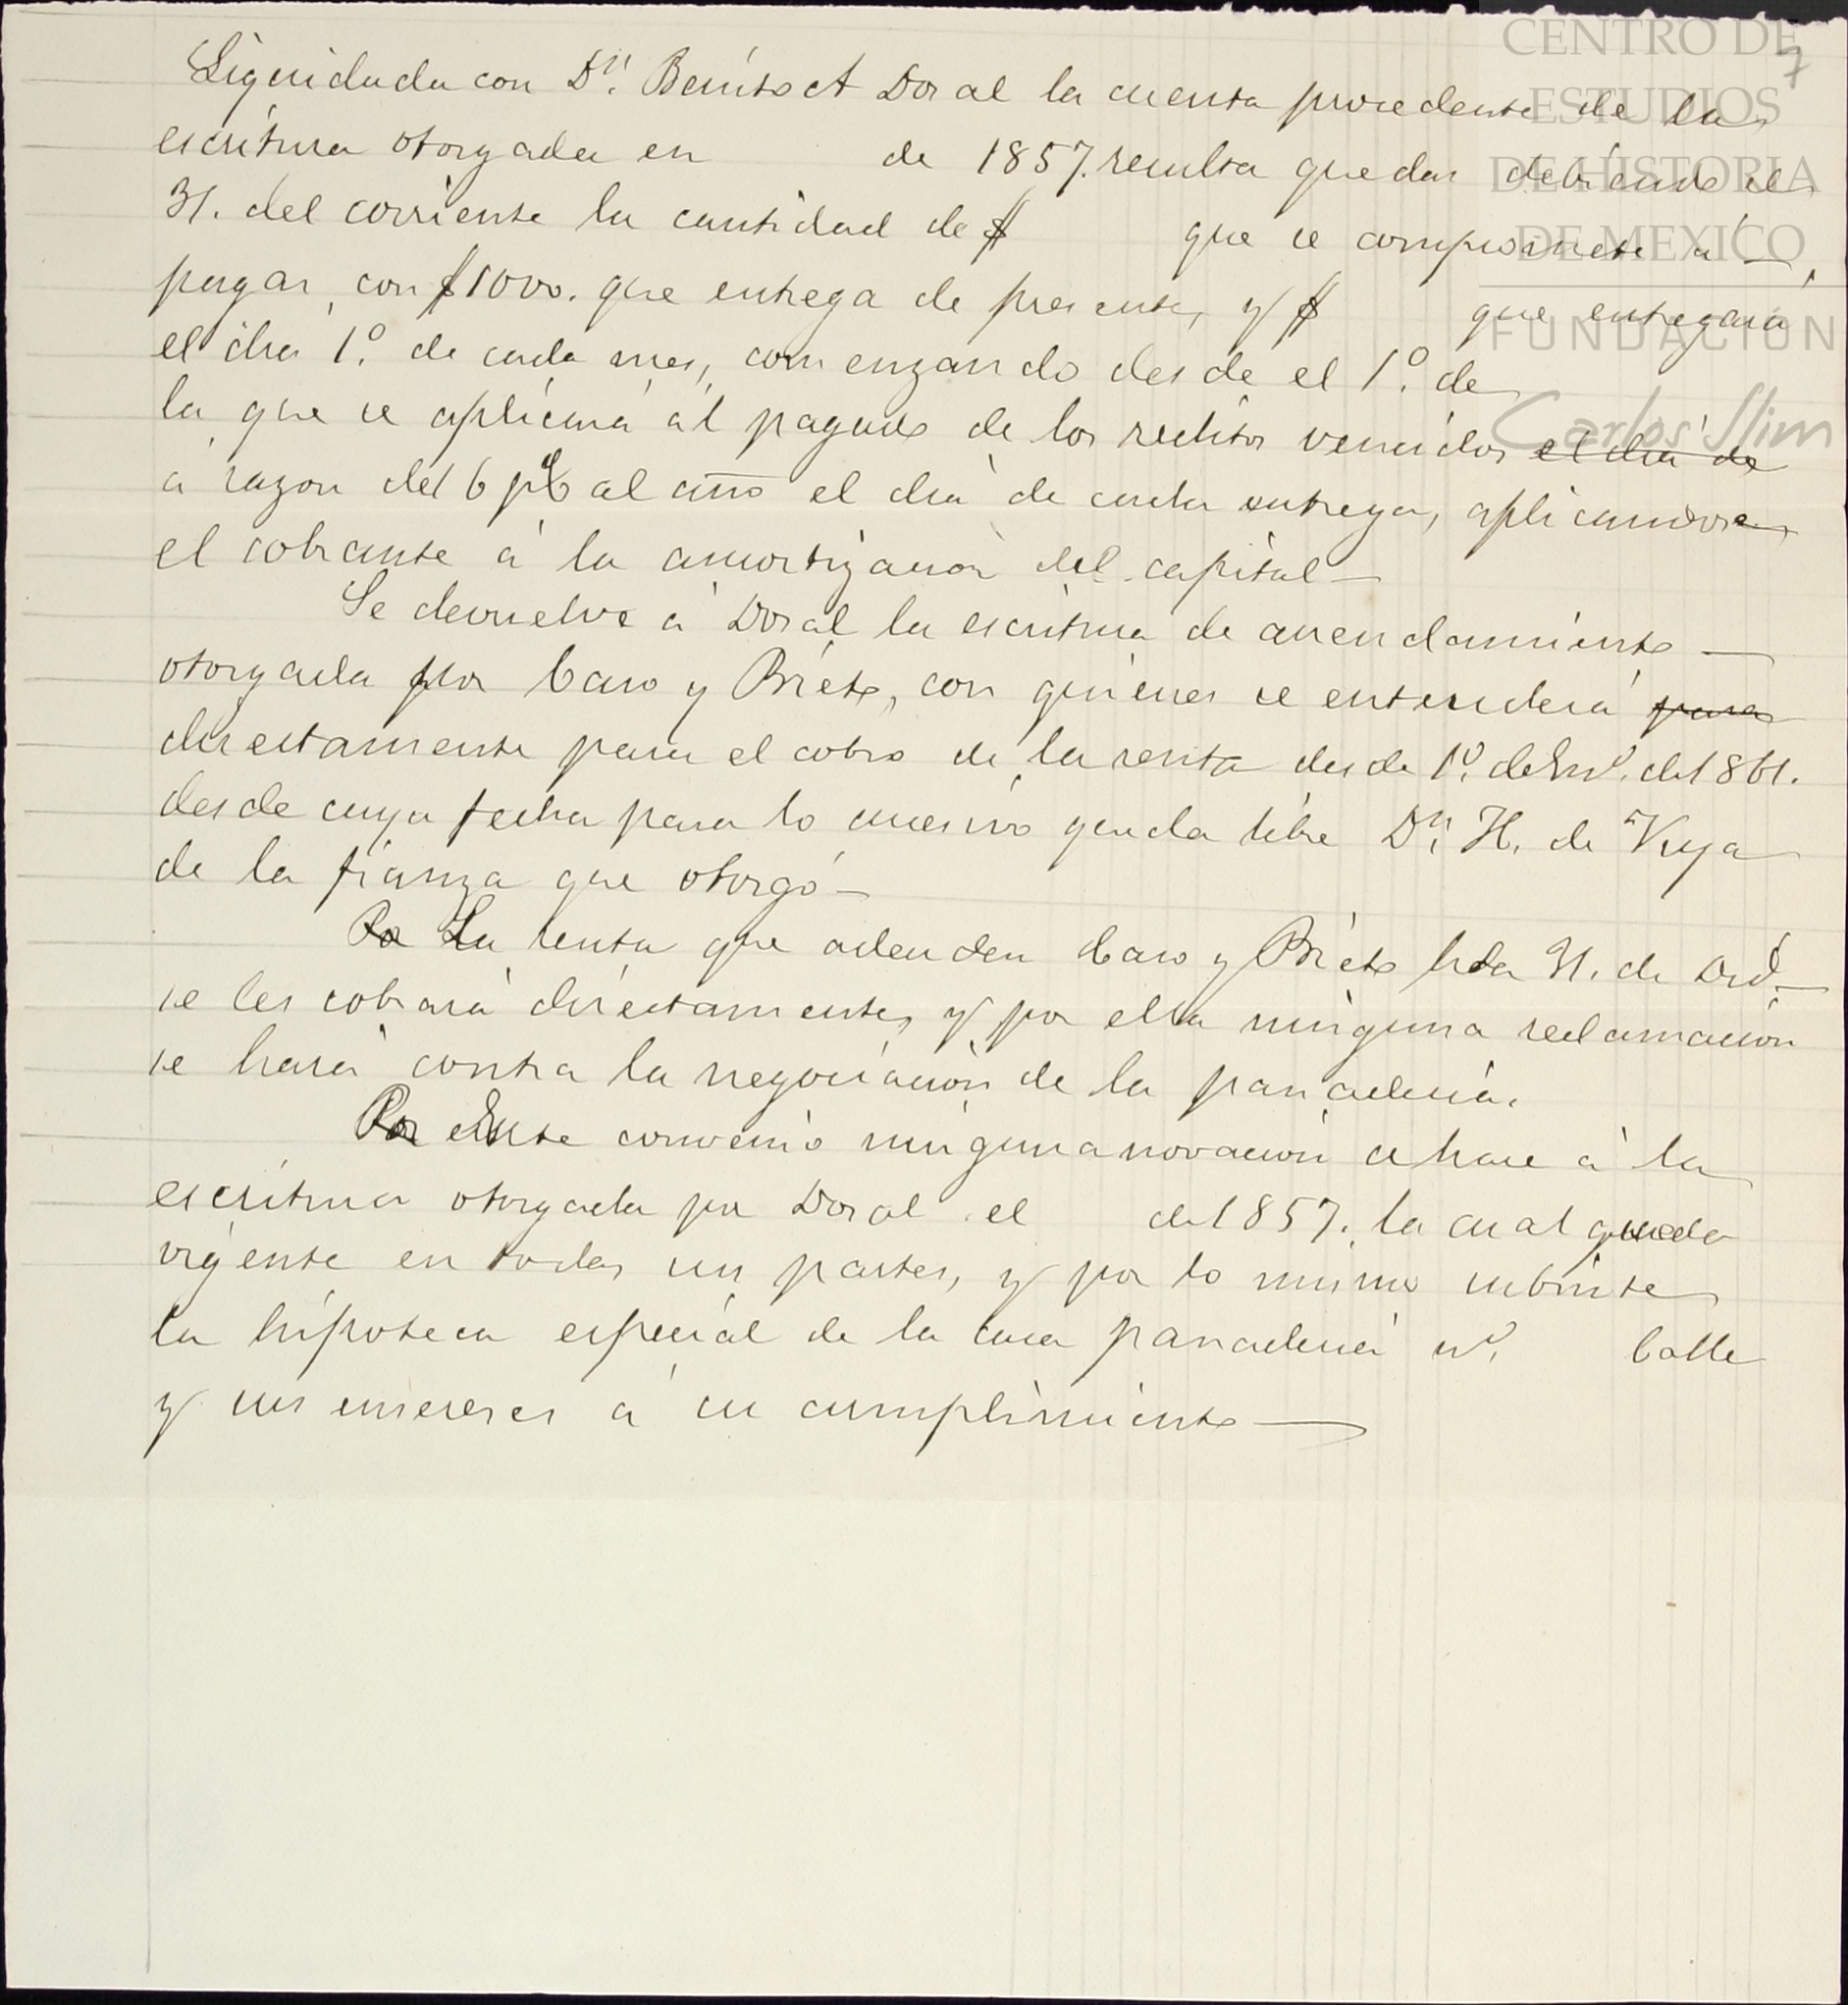 Liquidada con Dn. Benito A Doral la cuenta procedente de la
escritura otorgada en de 1857. resulta quedar debiendo el
31. del corriente la cantidad de $ que se compromete á
pagar, con $1000. que entrega de presente, y $ que entregará
el dia 1º. de cada mes, comenzando desde el 1º. de
la que se aplicará al pago de los reditos vencidos el dia de
a razon del 6 p% al año el dia de cada entrega, aplicandose
el sobrante á la amortizacion del capital—
Se devuelve á Doral la escritura de arrendamiento —
otorgada por Caso y Prieto, con quienes se entenderá para
directamente para el cobro de la renta desde 1º. de Enº. de 1861.
desde cuya fecha para lo sucesivo queda libre Dn. H. de Vega
de la fianza que otorgó—
Po La renta que adeuden Caso y Prieto hta 31. de Dic.—
se les cobrará directamente, y por ella ninguna reclamacion
se hará contra la negociacion de la panaderia.
Por Este convenio ninguna novacion se hace á la
escritura otorgada por Doral el de 1857. la cual queda
vigente en todas sus partes, y por lo mismo subsiste
la hipoteca especial de la casa panaderia nº. Calle
y sus enseres á su cumplimiento —
7
CENTRO DE
ESTUDIOS
DE HISTORIA
DE MEXICO
FUNDACIÓN
Carlos Slim